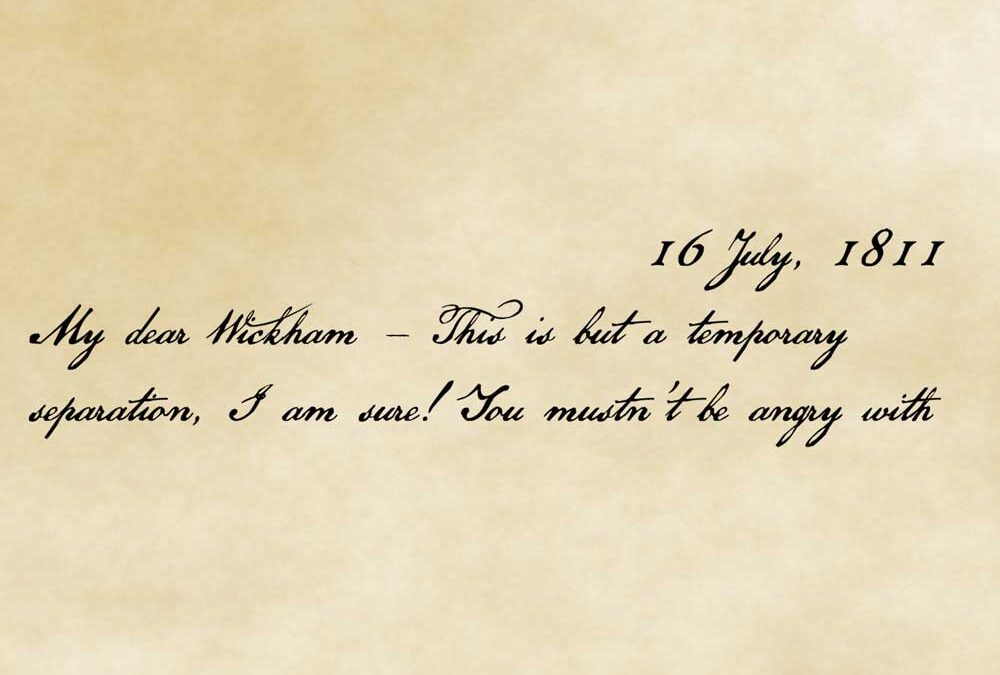 16 July, 1811
My dear Wickham – This is but a temporary
separation, I am sure! You mustn't be angry with